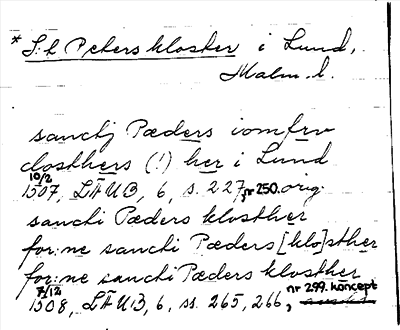 * S:t Peters kloster i Lund,
Malm. l.
sanctj Pæders iomfrv
closthers (!) her i Lund
10/2 1507, LÄUB, 6, s. 227, nr 250. orig.
sancti Pæders klosther
for:ne sancti Pæders [klo]sther
for:ne sancti Pæders klosther
7/12 1508, LÄUB, 6, ss. 265, 266, nr 299. koncept